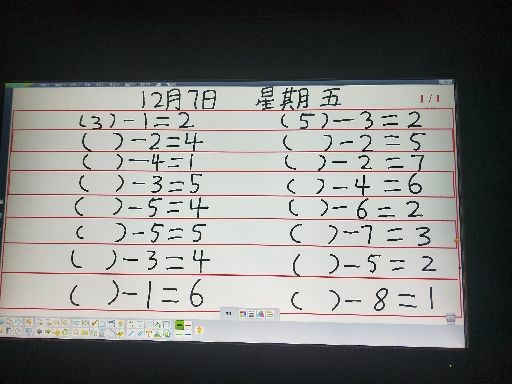 12月7日 星期五
1/1
(3)-1=2 (5)-3=2
( )-2=4 ( )-2=5
( )-4=1 ( )-2=7
( )-3=5 ( )-4=6
( )-5=4 ( )-6=2
( )-5=5 ( )-7=3
( )-3=4 ( )-5=2
( )-1=6 ( )-8=1